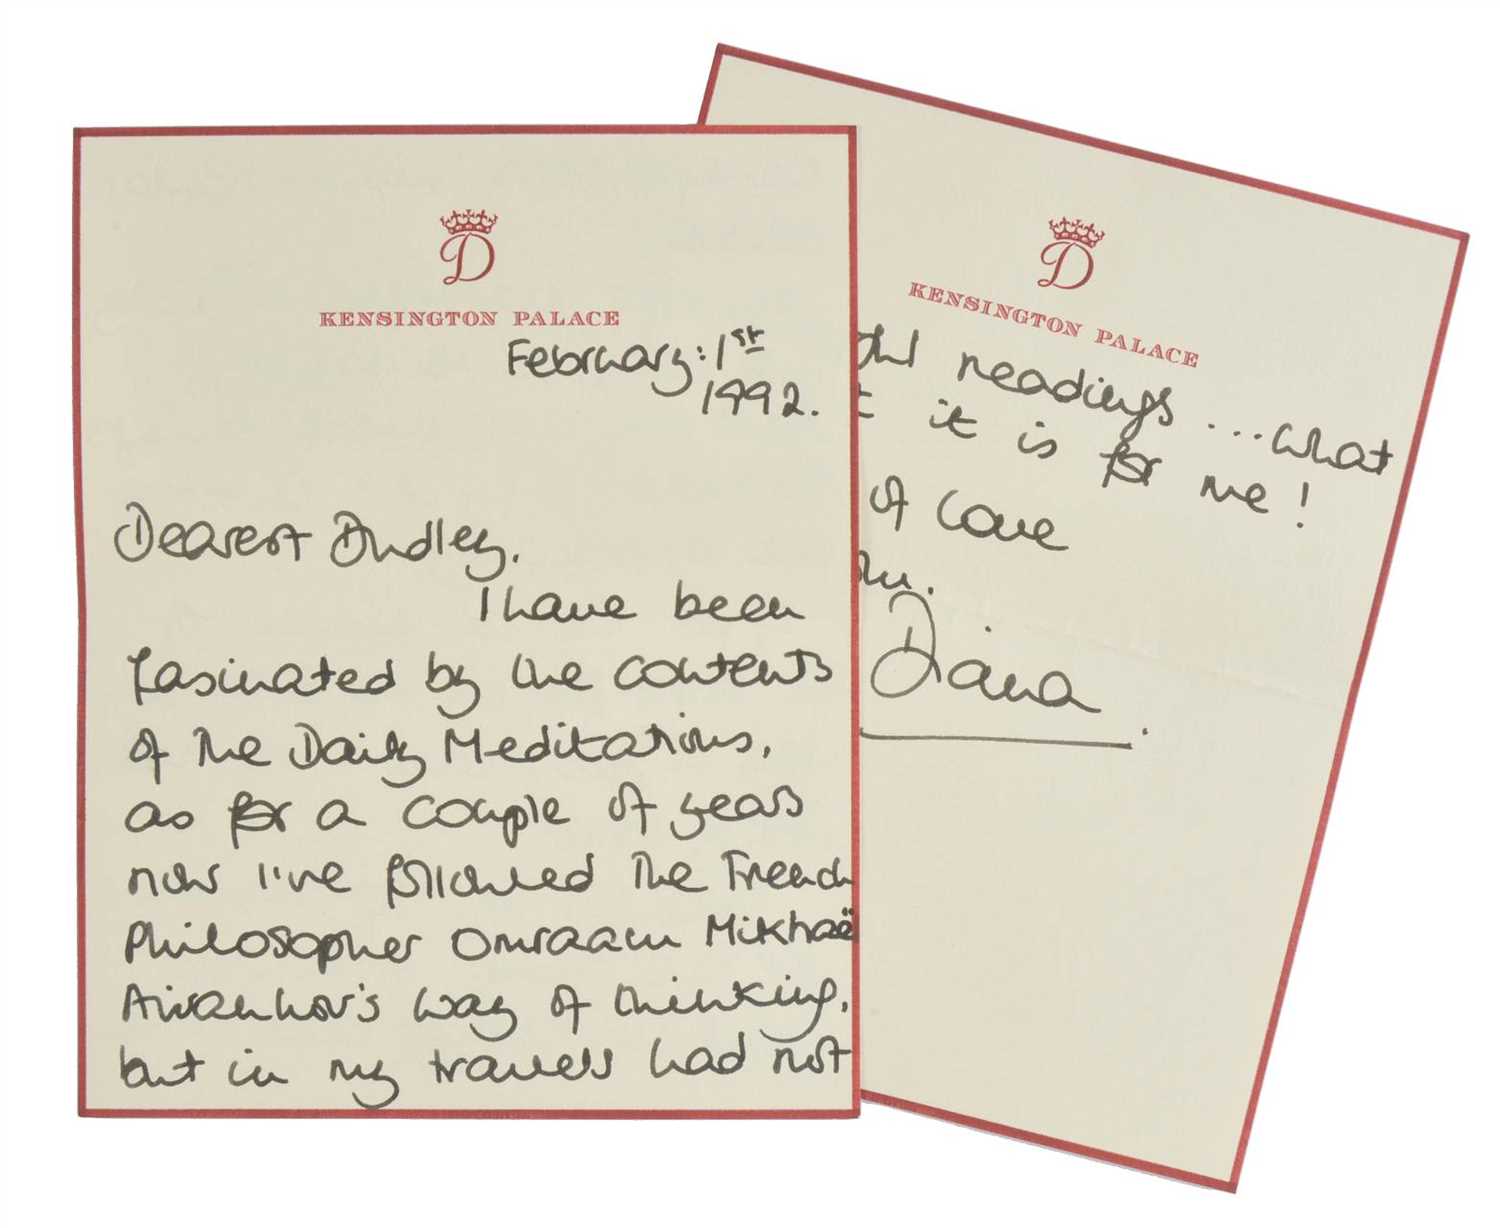 D
KENSINGTON PALACE
February: 1st
1992.
Dearest Dudley,
I have been
fasinated by the contents
of the Daily Meditations,
as for a couple of years
now I've followed the French
Philosopher Omraam Mikhaë
Aivanhov's way of thinking,
but in my travels had not
D
KENSINGTON PALACE
readings ... what
it is for me!
of love
Diana.